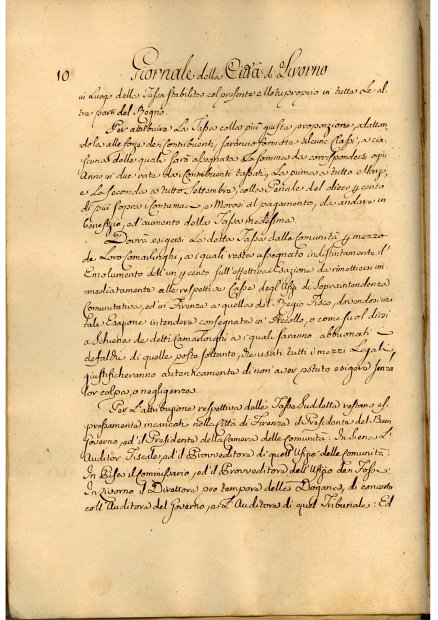 10 Giornale della Città di Livorno
in luogo della Tassa stabilita col presente Motuproprio in tutte le al
tre parti del Regno.
Per attribuire la Tassa colla più giusta proporzione, adattan
dola alle forze dei Contribuenti, saranno formate alcune Classi, a cia
scuna delle quali sarà assegnata la somma da corrispondersi ogni
Anno in due rate dai Contribuenti tassati, la prima a tutto Marzo,
e la seconda a tutto Settembre, colla Penale del dieci per cento
di più sopra i Contumaci, e Morosi al pagamento, da andare in
benefizio, ed aumento della Tassa medesima.
Dovrà esigersi la detta Tassa dalle Comunità per mezzo
de Loro Camarlinghi, ai quali resta assegnato indistintamente l'
Emolumento dell'un per cento sull'effettiva Esazione da rimettersi im
mediatamente alle respettive Casse degl'Ufizj di Sopraintendenza
Comunitativa, ed in Firenze a quella del Regio Fisco, dovendosi una
tale Esazione intendere consegnata in Accollo, o come suol dirsi
a Schiena de detti Camarlinghi ai quali saranno abbuonati i
defalchi di quelle poste soltanto, che usati tutti i mezzi Legali
giustificheranno autenticamente di non aver potuto esigere senza
lor colpa, o negligenza.
Per l'attribuzione respettiva delle Tasse suddette restano es
pressamente incaricati nella Città di Firenze il Presidente del Buon
Governo, ed il Presidente della Camera delle Comunità: In Siena l'
Auditor Fiscale, ed il Provveditore di quell'Ufizio delle Comunità:
In Pisa il Commissario, ed il Provveditore dell'Ufizio de' Fossi:
In Livorno il Direttore pro tempore della Dogana, di concerto
coll'Auditore del Governo, e l'Auditore di quel Tribunale: Ed